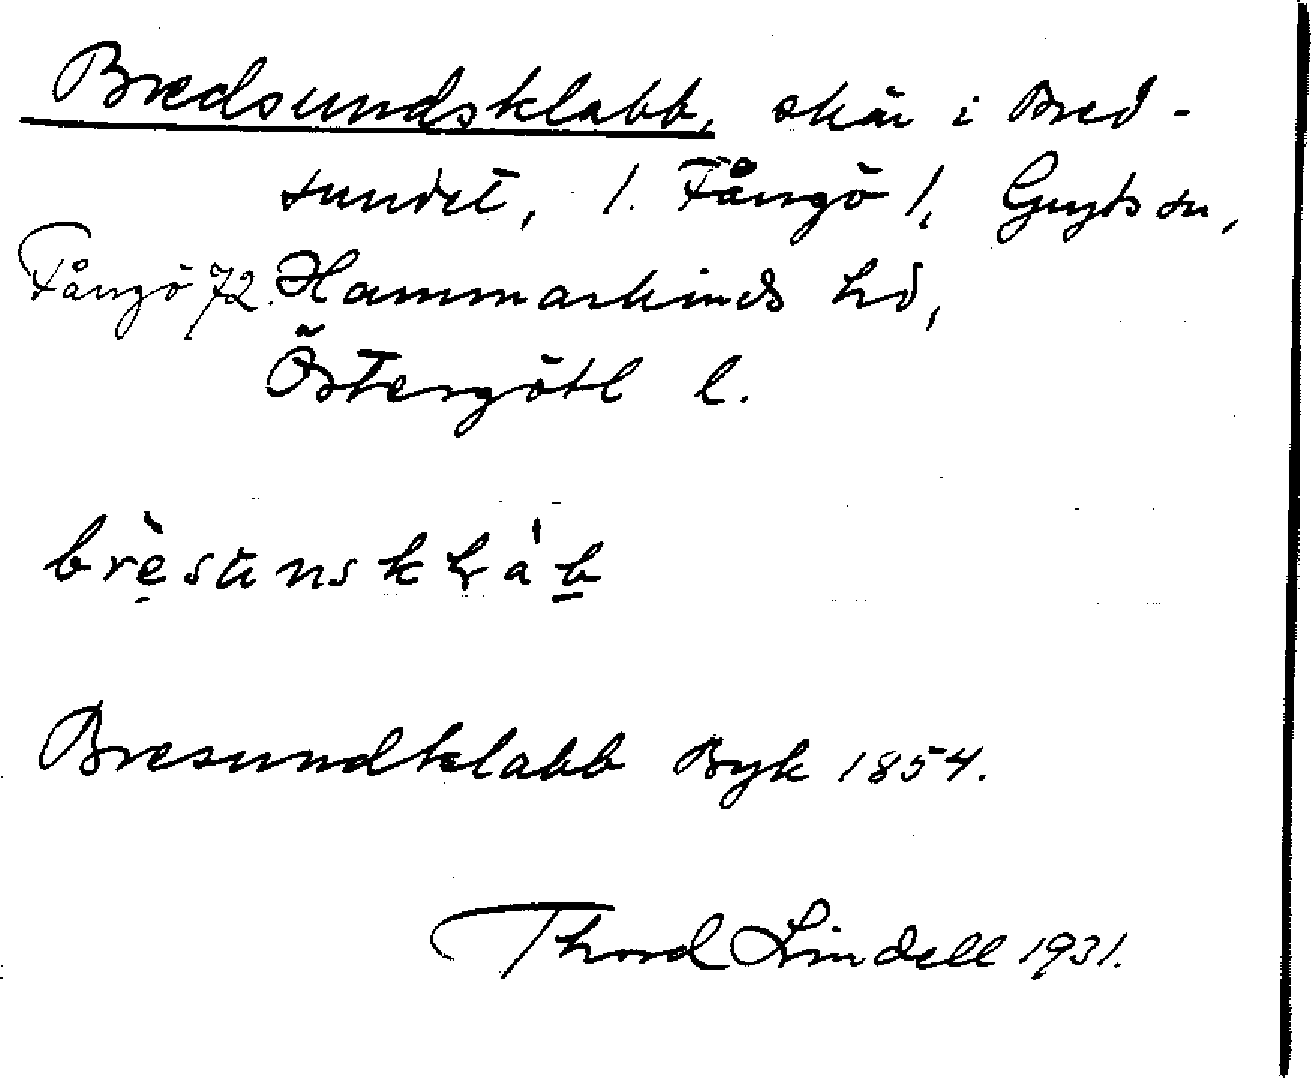 Bredsundsklabb, skär i Bred-
sundet, l. Fångö l, Gryts sn,
Fångö 72. Hammarkinds hd,
Östergötl l.
Bresundklabb Byk 1854.
Thord Lindell 1931.